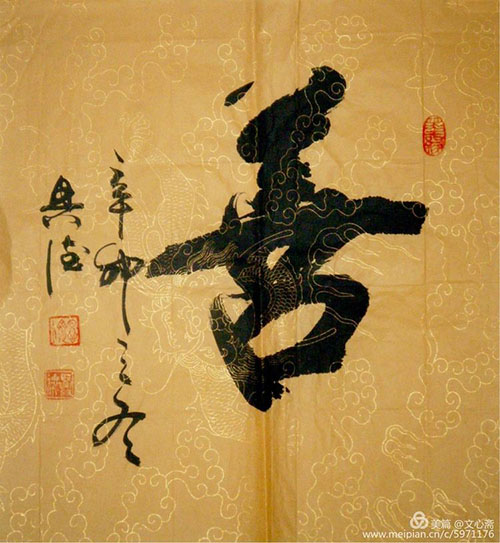 善
辛卯之冬
德
美篇 @文心斋
www.meipian.cn/c/5971176